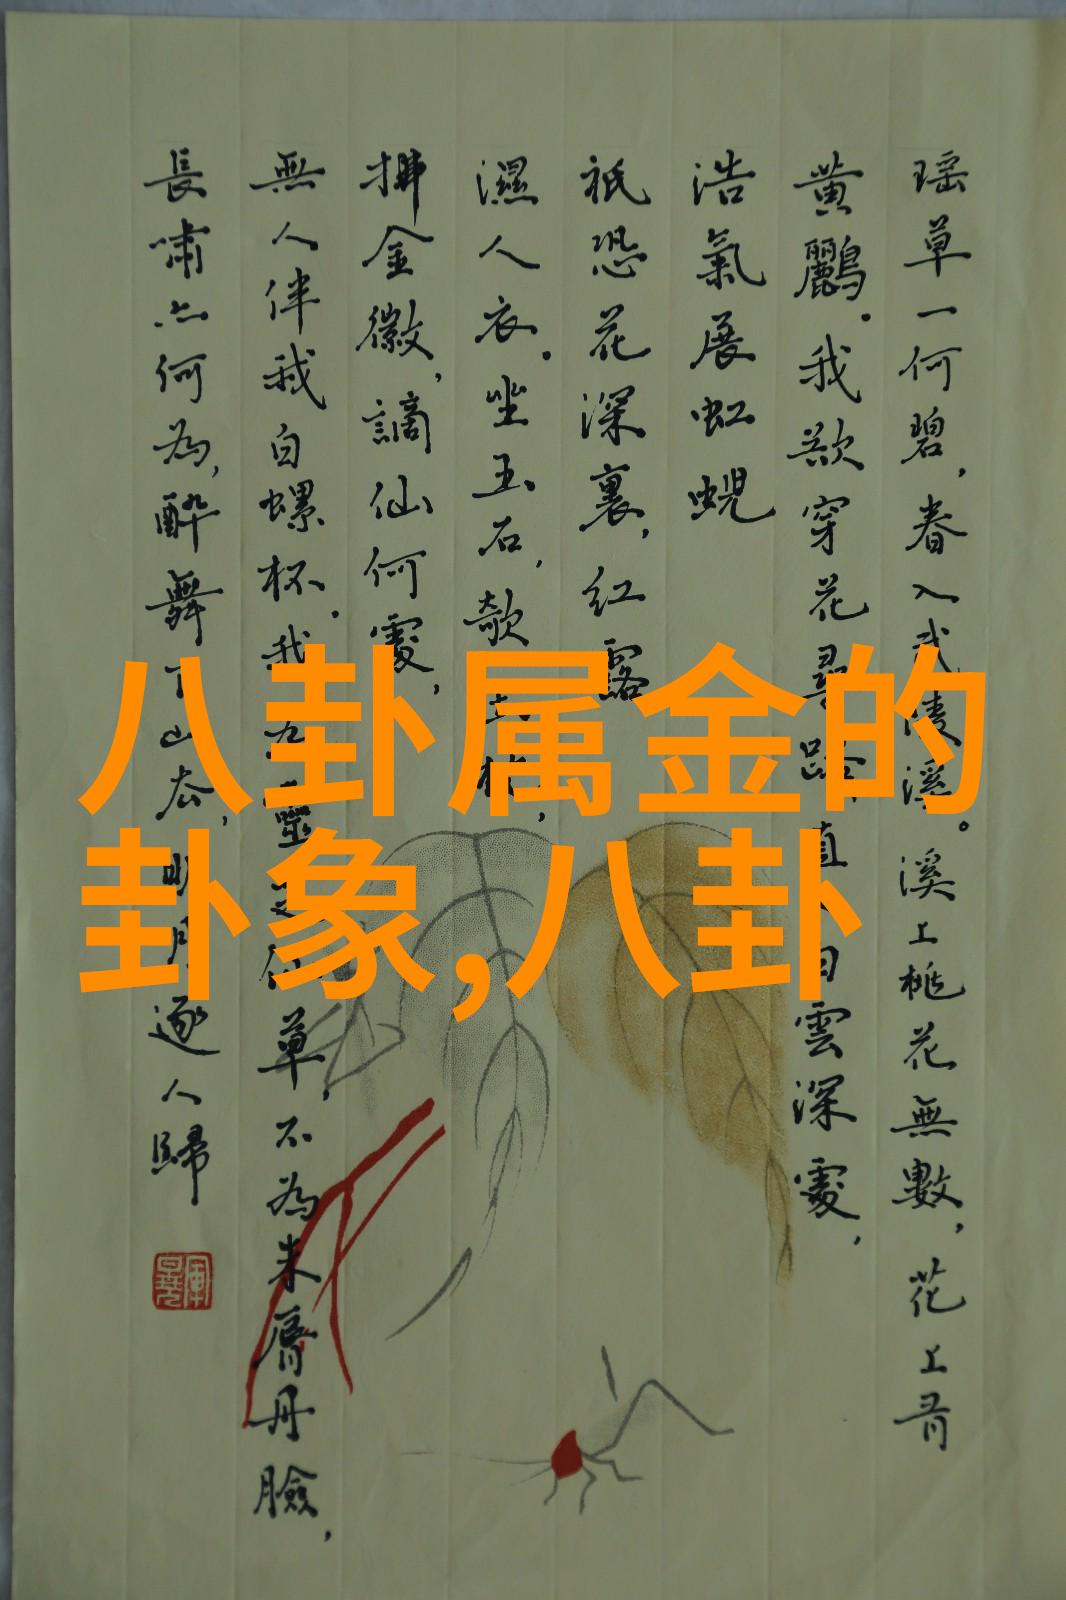 八卦属金的
卦象,八卦
瑶草一何碧,春入武陵溪。溪上桃花無數,花上有
黄鸝。我欲穿花尋路,直入白雲深處,
浩氣展虹蜺
祇恐花深裏,紅露
濕人衣。坐玉石,欹玉枕,
拂金徽,謫仙何處,
無人伴我白螺杯。我為靈芝仙草,不為朱脣丹臉,
長嘯亦何為,醉舞下山去,明月逐人歸